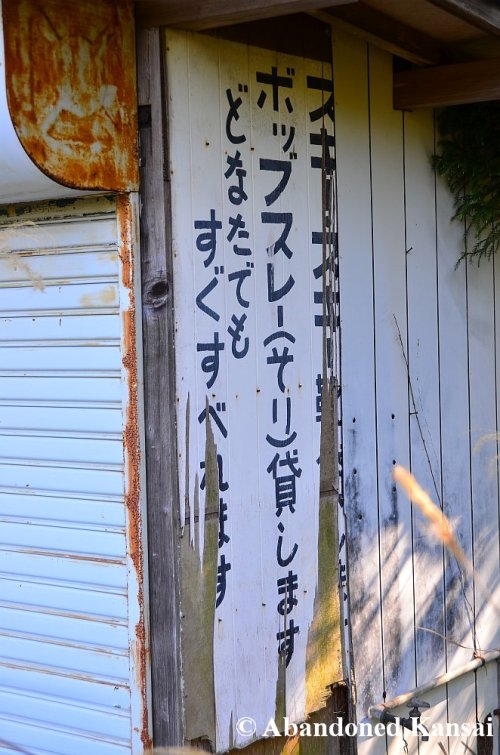 スキー スキー靴
ボッブスレー(そり)貸します
どなたでも
すぐすべれます
© Abandoned Kansai